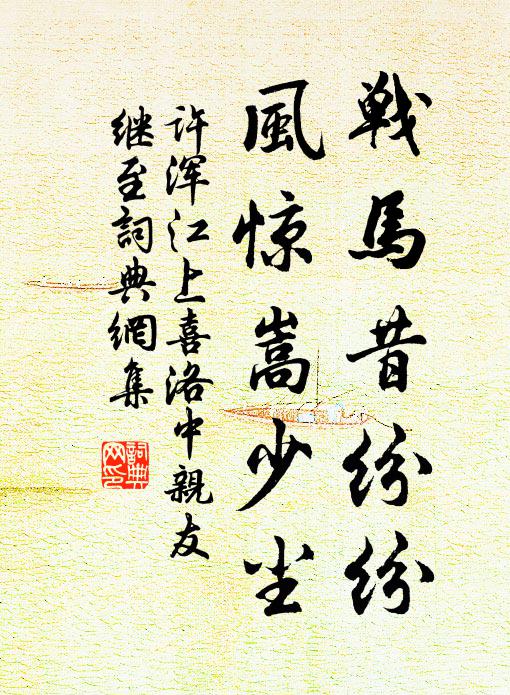 戦馬昔纷纷
風惊嵩少尘
许浑江上喜洛中親友
继至詞典網集
詞典
网印